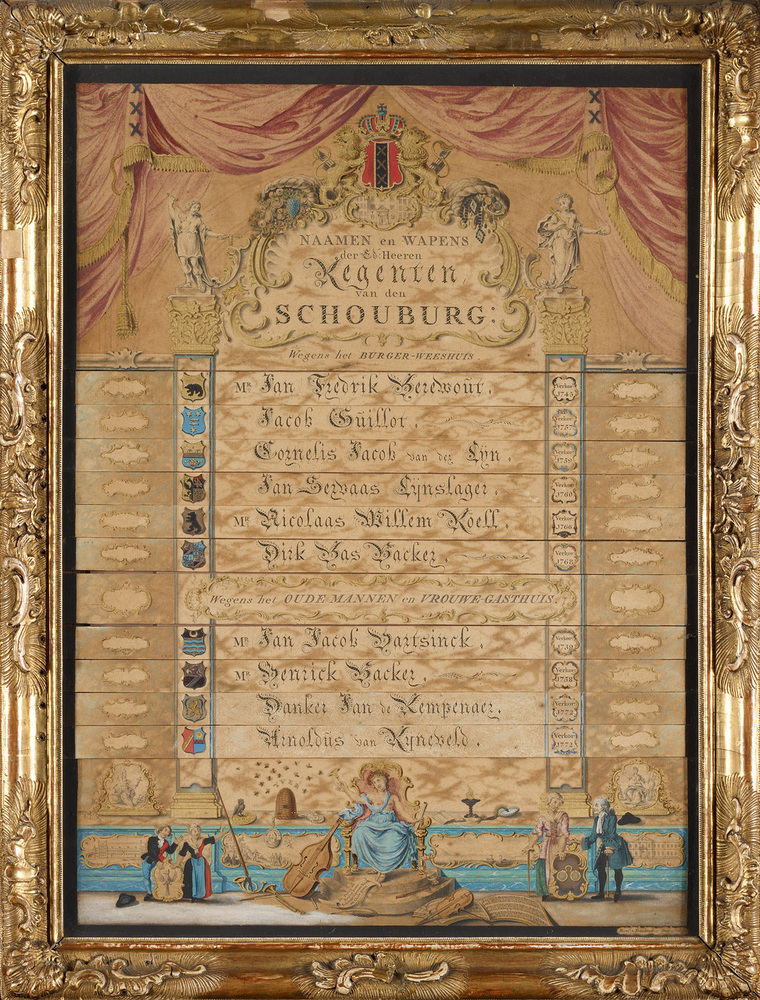 NAAMEN en WAPENS
der Ed: Heeren
Regenten
van den
SCHOUBURG:
Wegens het BURGER-WEESHUIS
Mr. Jan Fredrik Berewout. Verkor 1743
Jacob Guillot. Verkor 1757
Cornelis Jacob van der Lyn. Verkor 1759
Jan Servaas Lynslager. Verkor 1760
Mr. Nicolaas Willem Roëll. Verkor 1766
Dirk Bas Backer Verkor 1768
Wegens het OUDE-MANNEN en VROUWE-GASTHUIS.
Mr. Jan Jacob Hartsinck.
Mr. Henrick Backer. Verkor 1758
Danker Jan de Kempenaer. Verkor 1772
Arnoldus van Ryneveld. Verkor 1772